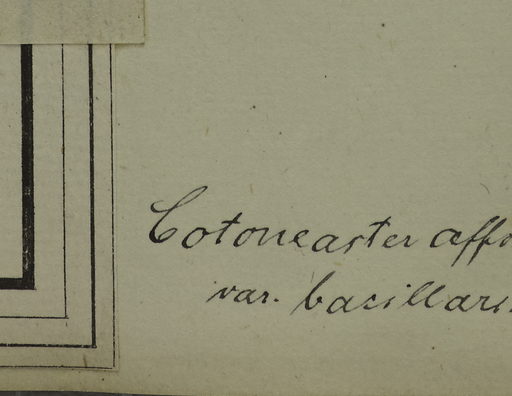 Cotoneaster affi
var. bacillaris